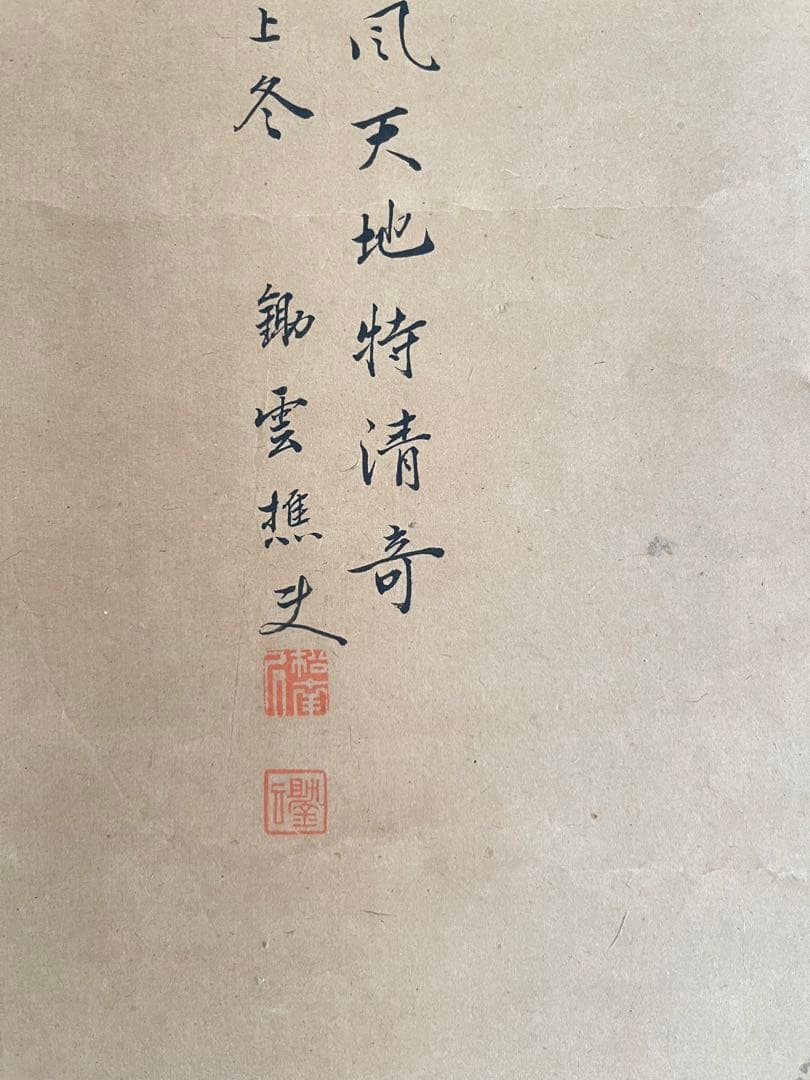 風天地特清奇
上冬
鋤雲樵史